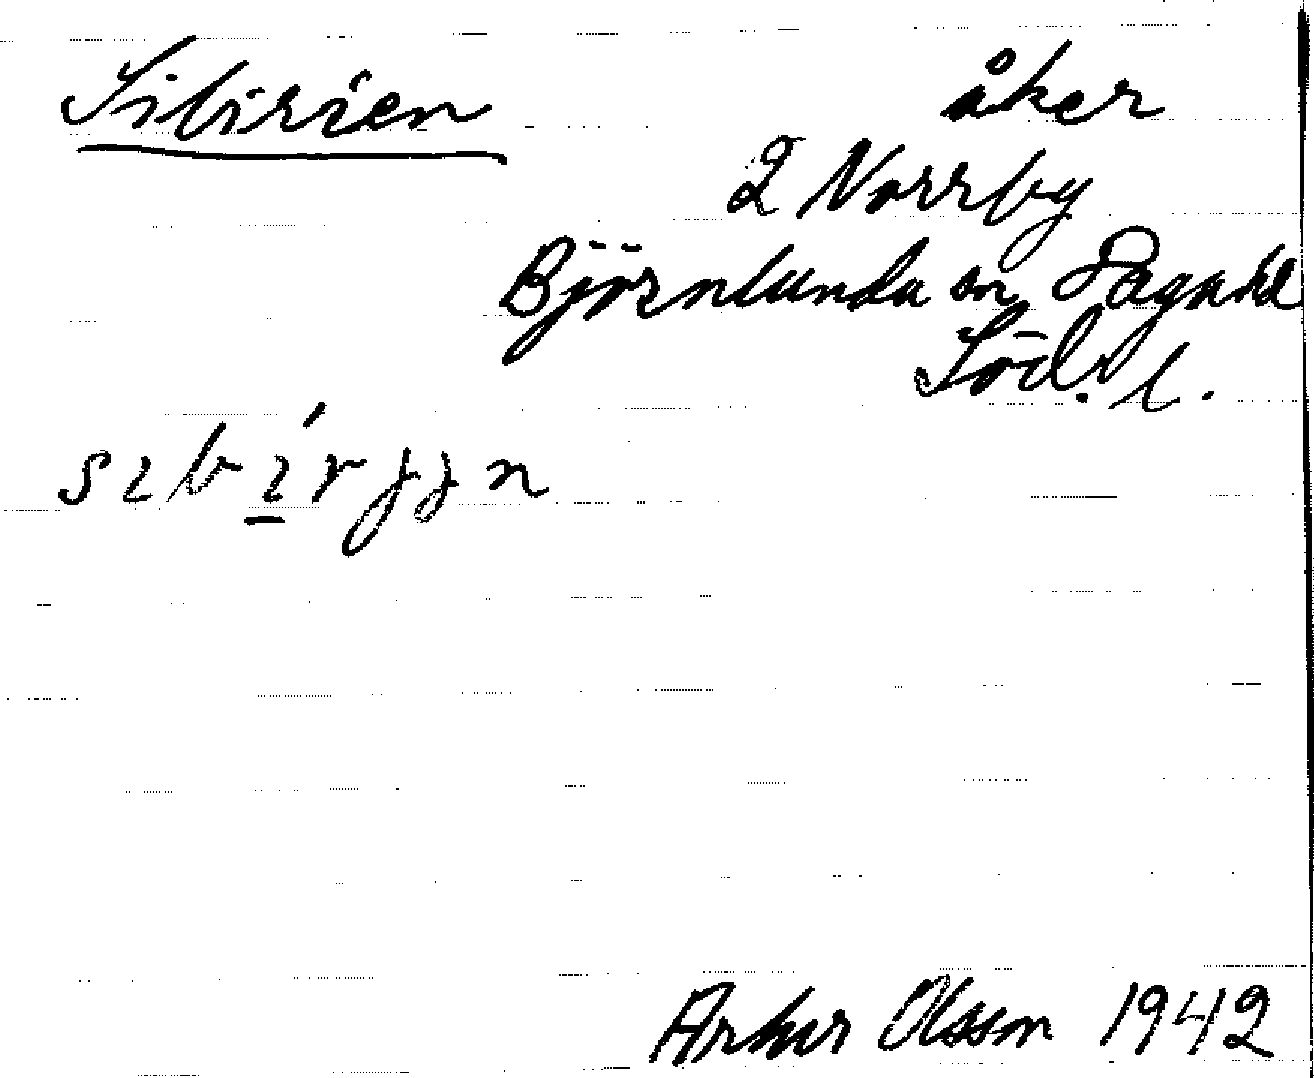 Sibirien
åker
2 Norrby
Björnlunda sn Daga hd
Söd. l.
Arthur Olsson 1942